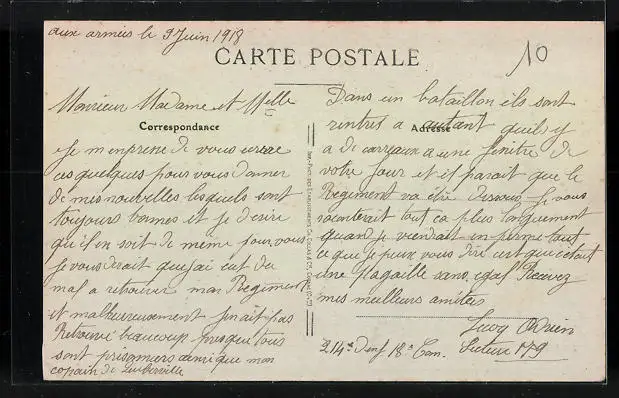 aux armées le 9 Juin 1918
CARTE POSTALE
10
Monsieur Madame et Melle
Correspondance
Je m'enprene de vous
ces quelques pour vous donner
de mes nouvelles lesquels sont
toujours bonnes et je desire
qu'il en soit de meme pour vous
Je vous dirait que j'ai eut du
mal a retrouver mon Regiment
et malheureusement j'en ait pas
Retrouvé beaucoup presque tous
sont prisonniers ainsi que mon
copain de
Dans un bataillon ils sont
rentres a autant qu'ils y
Adresse
a de carreaux a une finitre de
votre four et il parait que le
Regiment va être dissous Je vous
raconterait tout ca plus longuement
quand je viendrait en perme tout
ce que je peux vous dire c'est que c'etait
une pagaille sans egal Recevez
mes meilleurs amitiés
214e Inf 18e Con. Secteur 179